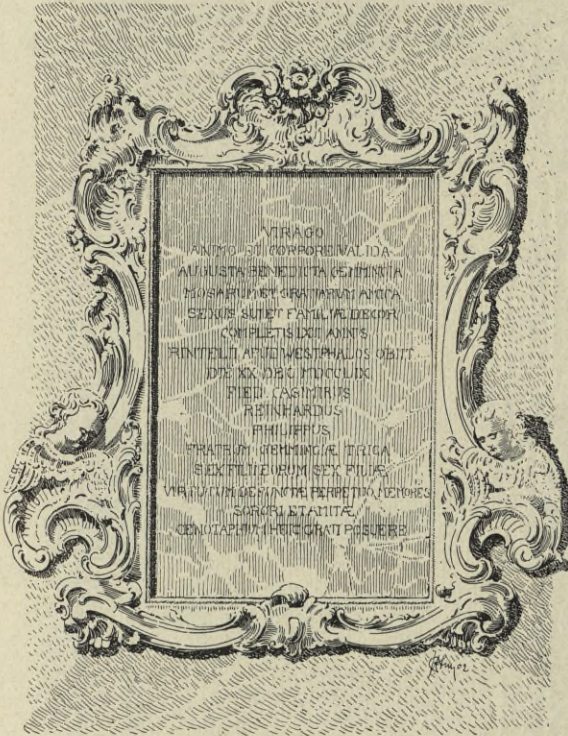 VIRAGO
ANIMO ET CORPORE VALIDA
AUGUSTA BENEDICTA GEMMINGIA
MUSARUM ET GRATIARUM AMICA
SEXUS SUI ET FAMILIÆ DECOR
COMPLETIS LXII ANNIS
RINTELII APUD WESTPHALOS OBIIT
DIE XX DEC MDCCLIX
REINHARDUS
PHILIPPUS
FRATRUM GEMMINGIÆ TRIGA
SEX FILII EORUM SEX FILIÆ
VIRTUTUM DEFUNCTÆ PERPETUO MEMORES
SORORI ET AMITÆ
CENOTAPHIUM HEIC GRATI POSUERE